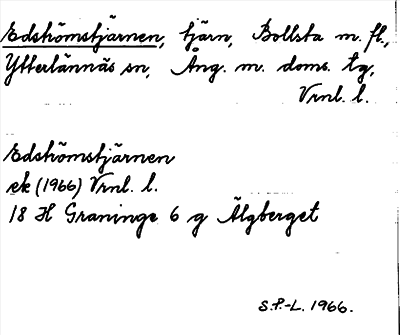 Edströmstjärnen, tjärn, Bollsta m. fl.,
Ytterlännäs sn, Ång. m. doms. tg,
Vrnl. l.
Edströmstjärnen
ek (1966) Vrnl. l.
18 H Graninge 6 g Älgberget
S.P.-L. 1966.